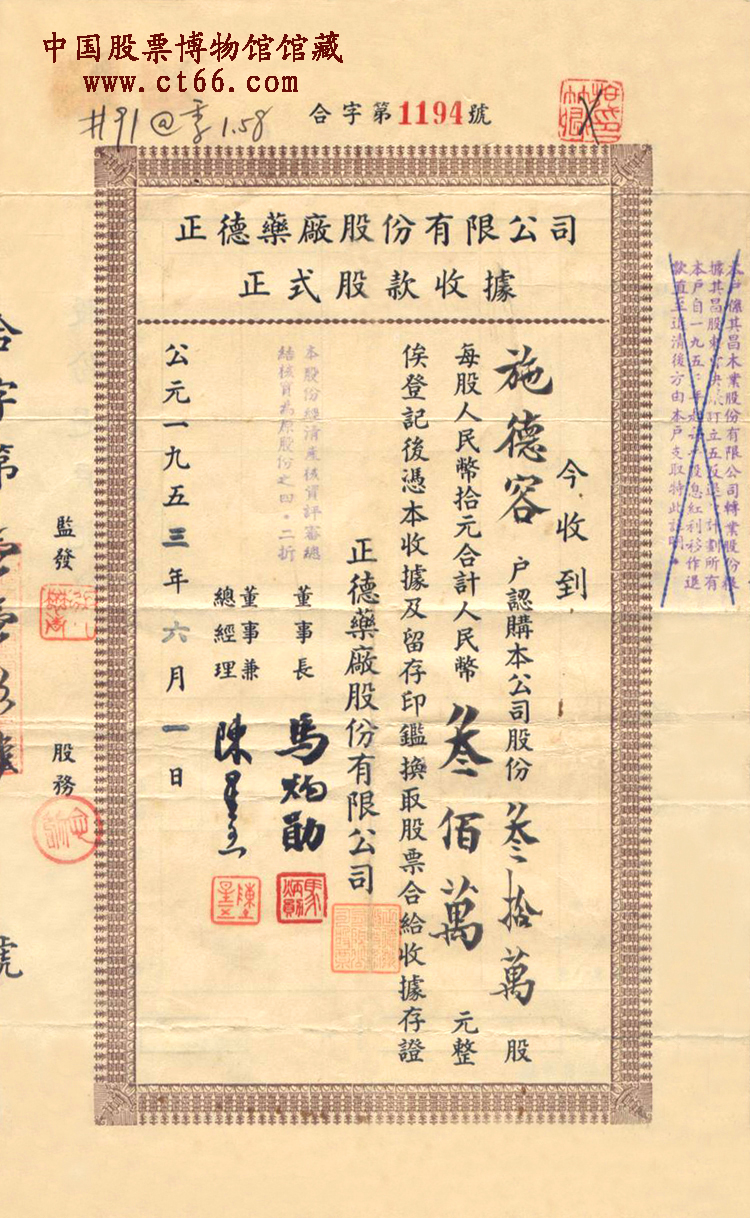 中国股票博物馆馆藏
www.ct66.com
#91@季1.58
合字第1194號
正德藥廠股份有限公司
正式股款收據
今收到
施德容 户認購本公司股份叁拾萬股
每股人民幣拾元合計人民幣叁佰萬元整
俟登記後憑本收據及留存印鑑換取股票合給收據存證
正德藥廠股份有限公司
董事長 馬炳勛
董事兼
總經理 陳
本股份經清產核資評審總
結核資為原股份之四·二折
公元一九五三年六月一日
本戶價其昌木業股份有限公司轉業股份根
據其昌股東訂立五反退計劃所有
本戶自一九五年起股息紅利移作退
款直至退清後方由本戶支取特此註明
監發
股務
合字第
號